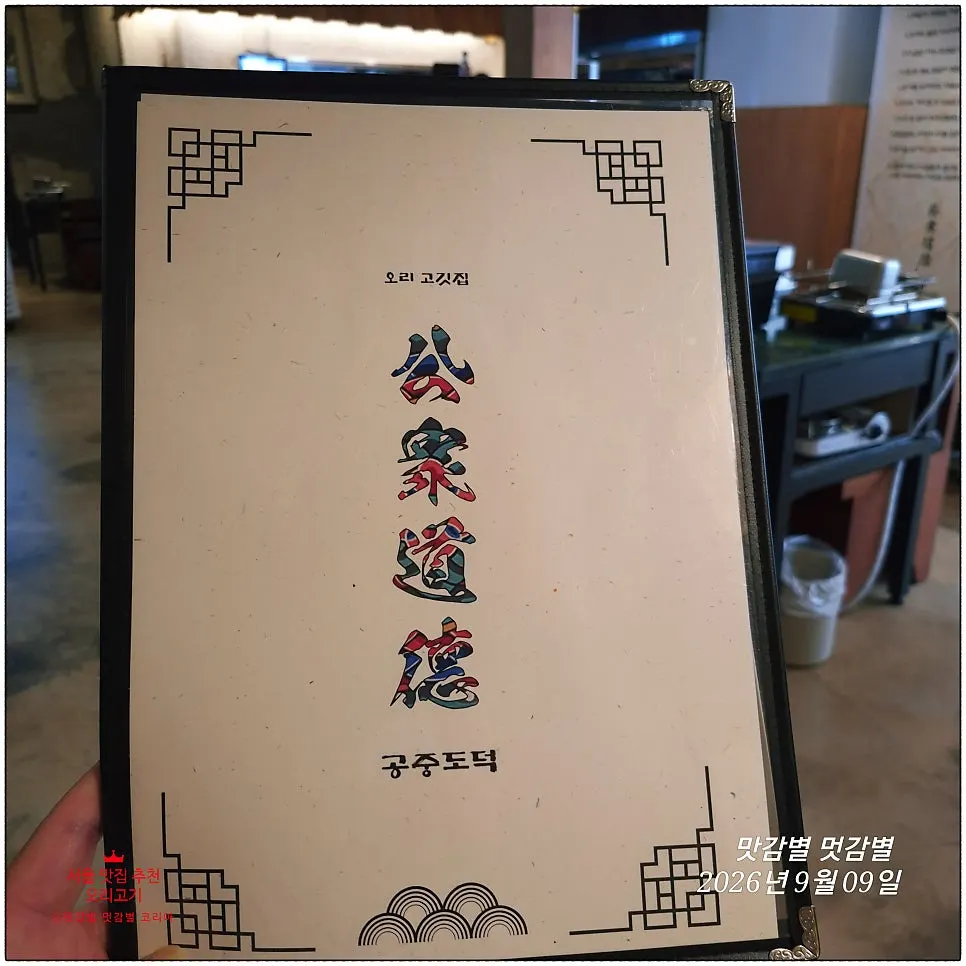 오리 고깃집
公
衆
道
德
공중도덕
맛감별 멋감별
2026년 9월 09일
맛집 추천
오리고기
멋감별 코리아